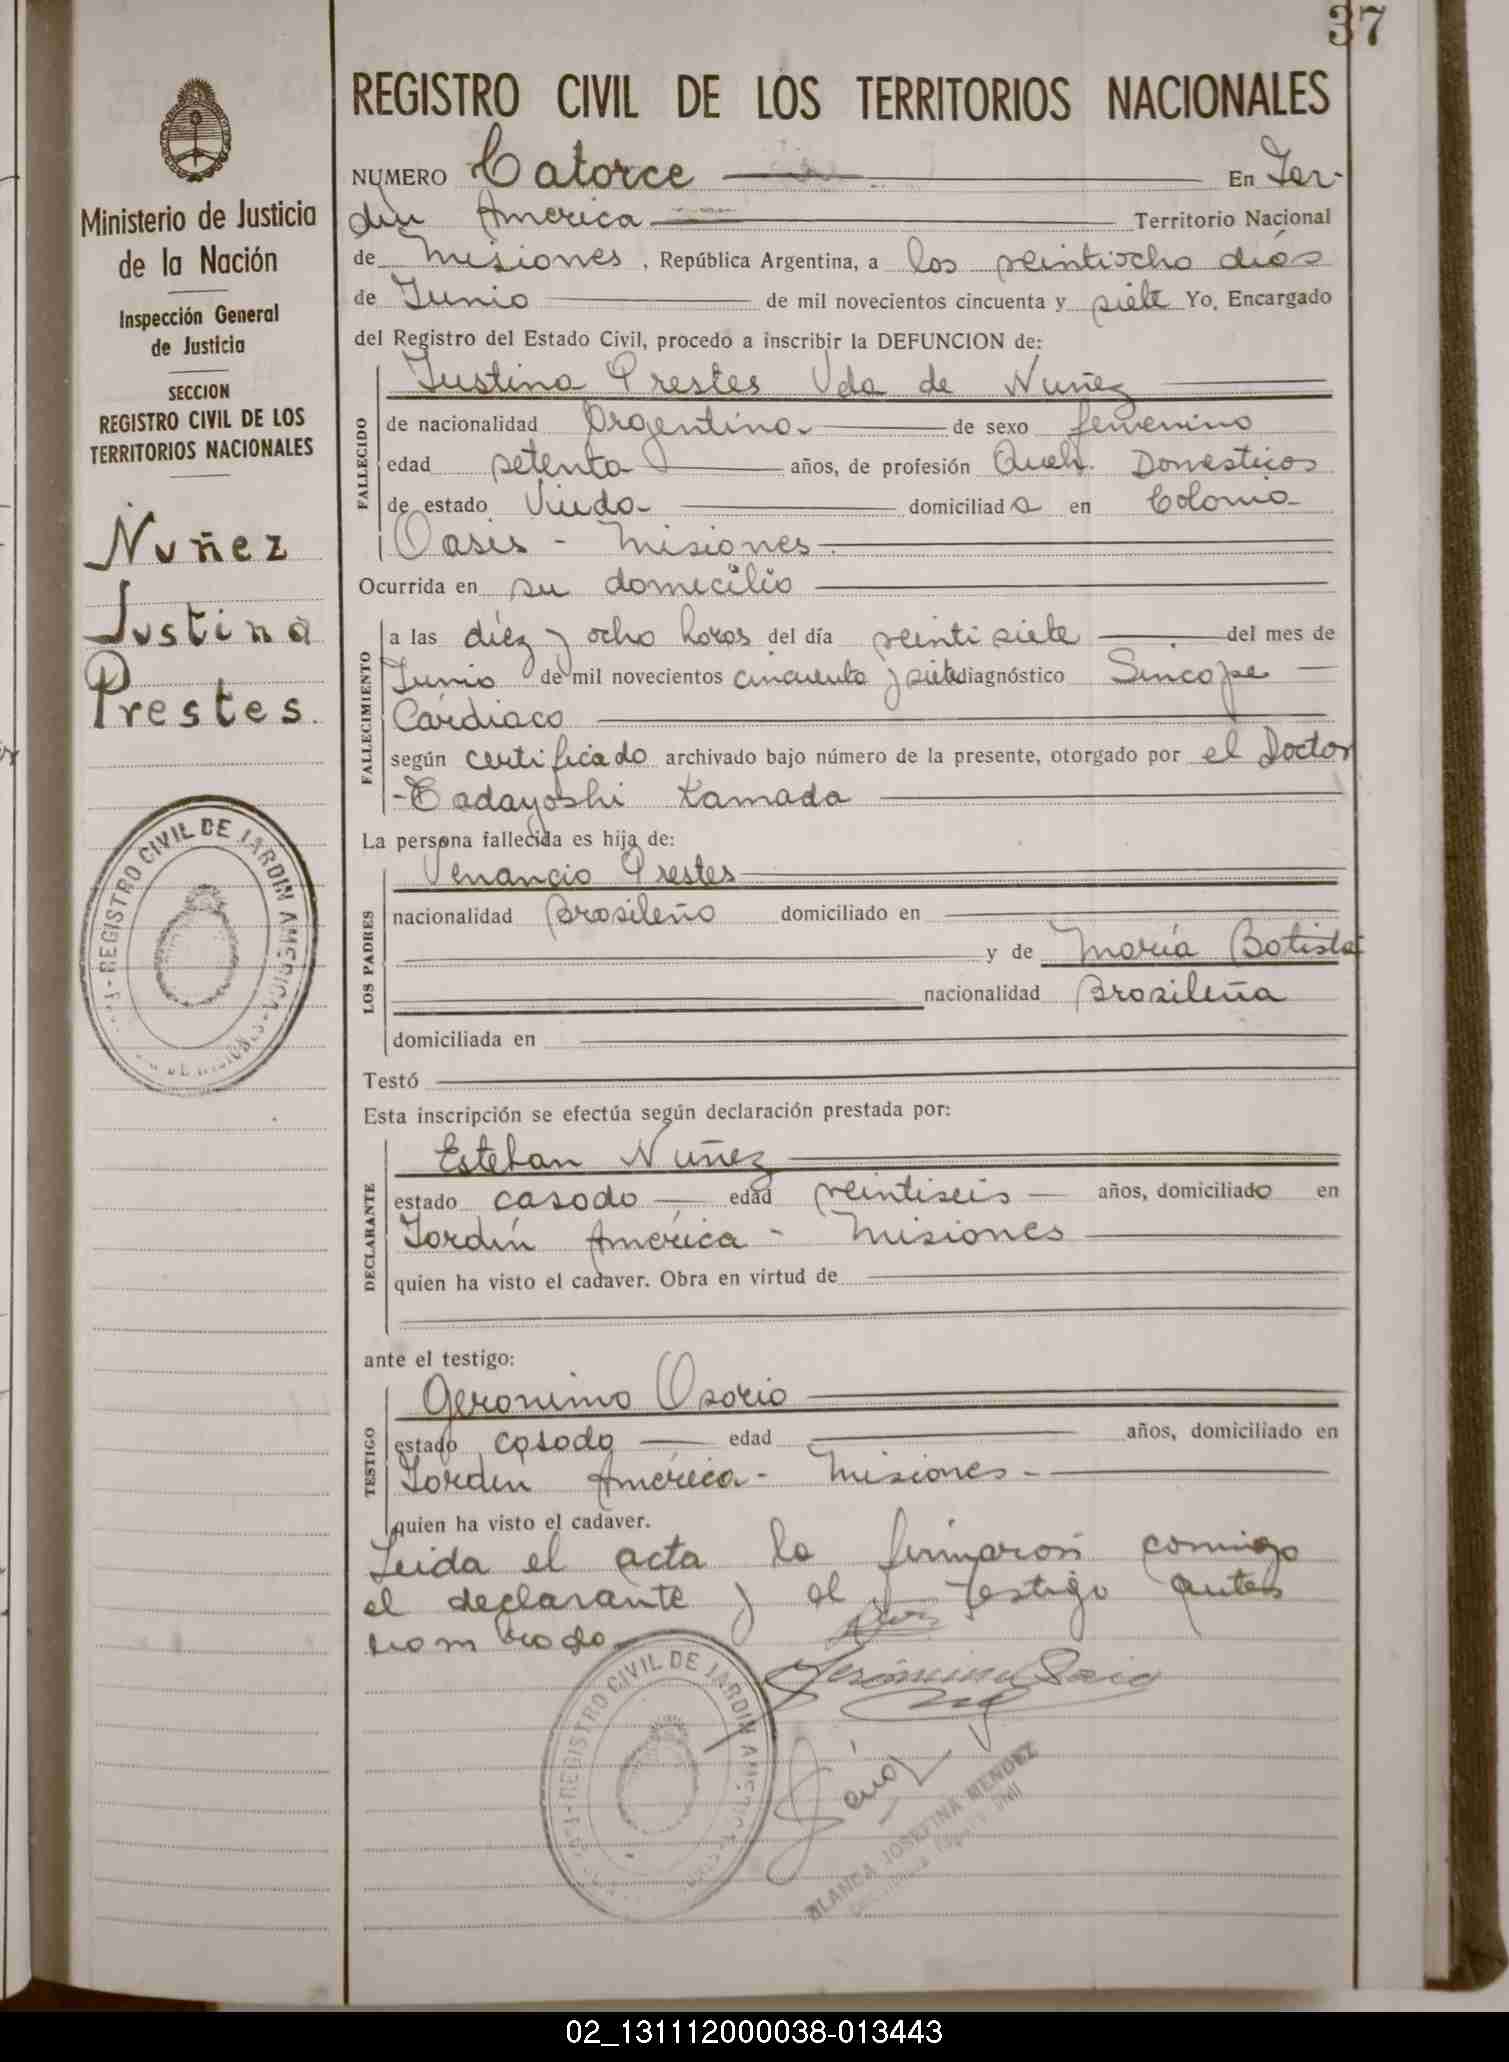 37
REGISTRO CIVIL DE LOS TERRITORIOS NACIONALES
Ministerio de Justicia
de la Nación
Inspección General
de Justicia
SECCION
REGISTRO CIVIL DE LOS
TERRITORIOS NACIONALES
Nuñez
Justina
Prestes.
REGISTRO CIVIL DE JARDIN AMERICA
NUMERO Catorce En Jar-
din America Territorio Nacional
de Misiones, República Argentina, a los veintiocho días
de Junio de mil novecientos cincuenta y siete Yo, Encargado
del Registro del Estado Civil, procedo a inscribir la DEFUNCION de:
FALLECIDO
Justina Prestes Vda de Nuñez
de nacionalidad Argentina. de sexo femenino
edad setenta años, de profesión Queh. Domesticos
de estado Viuda domiciliada en Colonia
Oasis - Misiones.
Ocurrida en su domicilio
FALLECIMIENTO
a las diéz y ocho horas del día veintisiete del mes de
Junio de mil novecientos cincuenta y siete diagnóstico Sincope
Cardiaco
según certificado archivado bajo número de la presente, otorgado por el Doctor
-Tadayoshi Kamada
La persona fallecida es hija de:
LOS PADRES
Venancio Prestes
nacionalidad Brasileño domiciliado en
y de María Batista
nacionalidad Brasileña
domiciliada en
Testó
Esta inscripción se efectúa según declaración prestada por:
DECLARANTE
Esteban Nuñez
estado casado edad veintiseis años, domiciliado en
Jardín América - Misiones
quien ha visto el cadaver. Obra en virtud de
ante el testigo:
TESTIGO
Geronimo Osorio
estado casado edad años, domiciliado en
Jardin América - Misiones -
quien ha visto el cadaver.
Leida el acta la firmaron comigo
el declarante y el testigo antes
nombrado
REGISTRO CIVIL DE JARDIN AMERICA
BLANCA JOSEFINA MENDEZ
02_131112000038-013443